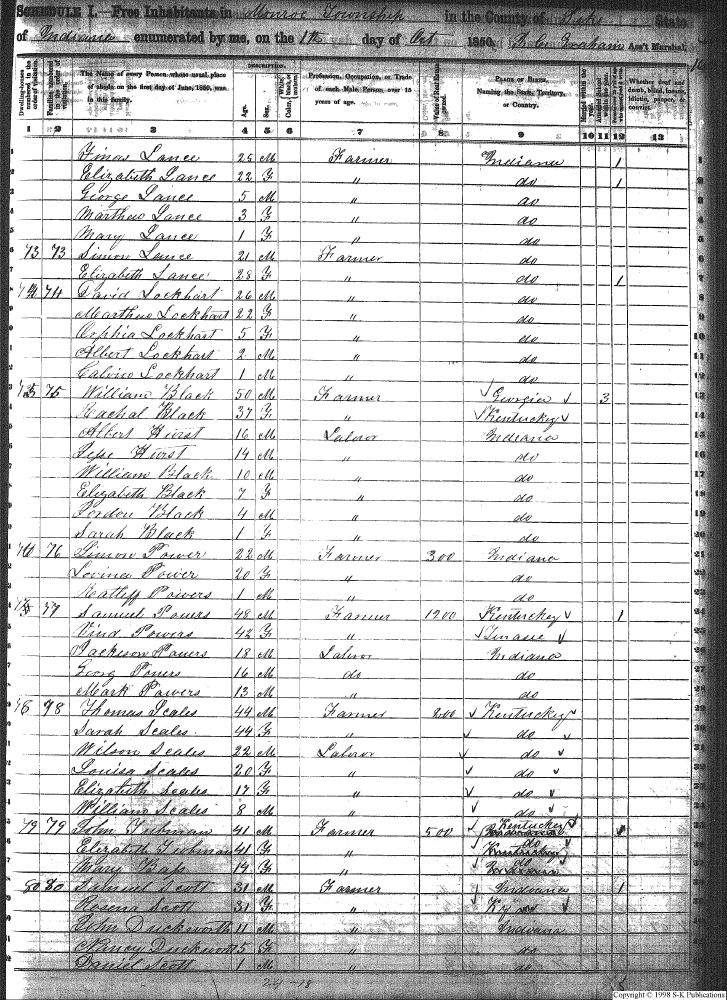 SCHEDULE I.—Free Inhabitants in Monroe Township in the County of Pike State
of Indiana enumerated by me, on the 1th day of Oct 1850. Ass't Marshal.
DESCRIPTION.
Dwelling-houses numbered in the order of visitation.
Families numbered in the order of visitation.
The Name of every Person whose usual place of abode on the first day of June, 1850, was in this family.
Age.
Sex.
Color, White, black, or mulatto.
Profession, Occupation, or Trade of each Male Person over 15 years of age.
Value of Real Estate owned.
PLACE OF BIRTH. Naming the State, Territory, or Country.
Married within the year.
Whether deaf and dumb, blind, insane, idiotic, pauper, or convict.
1 2 3 4 5 6 7 8 9 10 11 12 13
Lance 25 M Farmer Indiana 1
Elizabeth Lance 22 F " do 1
George Lance 5 M " do
Marthew Lance 3 F " do
Mary Lance 1 F " do
73 73 Simon Lance 21 M Farmer do
Elizabeth Lance 28 F " do 1
74 David Lockhart 26 M " do
Marthew Lockhart 22 F " do
Lockhart 5 F " do
Albert Lockhart 2 M " do
Calvin Lockhart 1 M " do
75 William Black 50 M Farmer Georgia 3
Rachal Black 37 F " Kentucky
Albert Hurst 16 M Labror Indiana
Jesse Hurst 14 M " do
William Black 10 M " do
Elizabeth Black 7 F " do
Black 4 M " do
Sarah Black 1 F " do
76 Simon Power 22 M Farmer 300 Indiana
Levina Power 20 F " do
Ratliff Powers 1 M " do
77 Samuel Powers 48 M Farmer 1200 Kentucky 1
Powers 42 F " Tinasee
Jackson Powers 18 M Labror Indiana
Georg Powers 16 M do do
Mark Powers 13 M " do
78 Thomas Scales 44 M Farmer 200 Kentucky
Sarah Scales 44 F " do
Wilson Scales 22 M Labror do
Louisa Scales 20 F " do
Elizabeth Scales 17 F " do
William Scales 8 M " do
79 79 John 41 M Farmer 500 Kentucky
Elizabeth 41 F " do
Mary 14 F " do
80 80 Samuel Scott 31 M Farmer Indiana 1
Rosena Scott 31 F " Ky
John Duckworth 11 M " Indiana
Nancy Duckworth 5 F " do
Daniel Scott 1 M " do
24 - 18
Copyright © 1998 S-K Publications